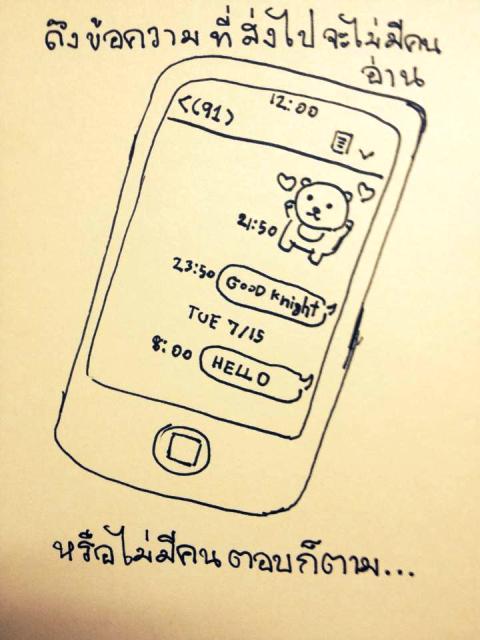 ถึงข้อความที่ส่งไปจะไม่มีคน
อ่าน
12:00
<(91)
21:50
23:50 GOOD Knight
TUE 7/15
8:00 HELLO
หรือไม่มีคนตอบก็ตาม...